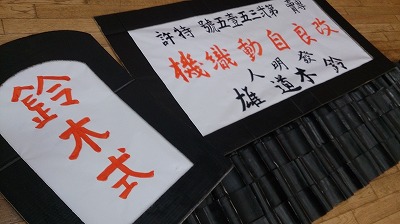 鈴木式
第弐三五壹五號 特許
改良自動織機
發明人
鈴木道雄